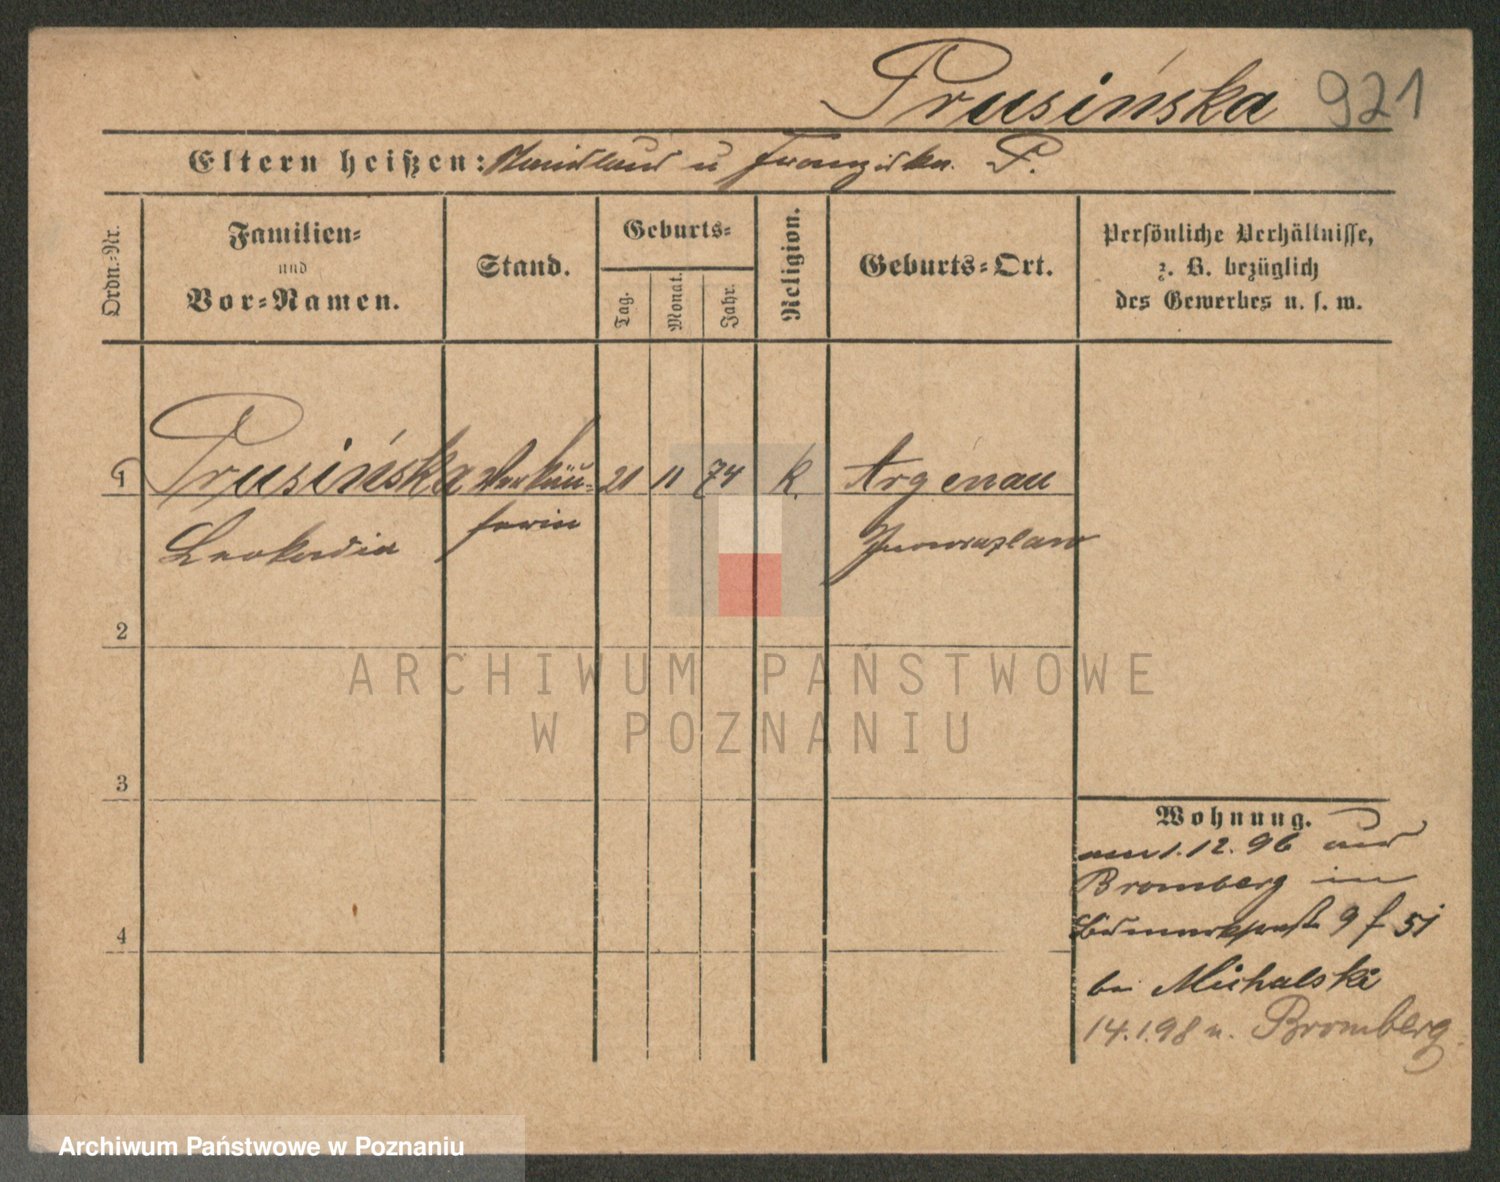 Prusińska 921
Eltern heißen: Stanislaus u Franziska P.
Ordn.-Nr.
Familien-
und
Vor-Namen.
Stand.
Geburts-
Tag.
Monat.
Jahr.
Religion.
Geburts-Ort.
Persönliche Verhältnisse,
z. B. bezüglich
des Gewerbes u. s. w.
1 Prusińska Verkäu- 21 11 74 K. Argenau
Leokadia ferin Inowrazlaw
2
3
4
Wohnung.
am 1.12.96 aus
Bromberg in
Bismarckstraße 9 f 51
bei Michalski
14.1.98 n. Bromberg.
ARCHIWUM PAŃSTWOWE
W POZNANIU
Archiwum Państwowe w Poznaniu